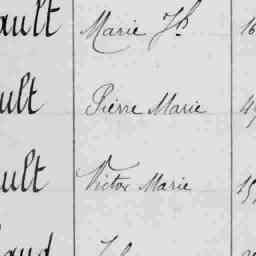 ault Marie Jh 16
ult Pierre Marie 49
ult Victor Marie 15
aud